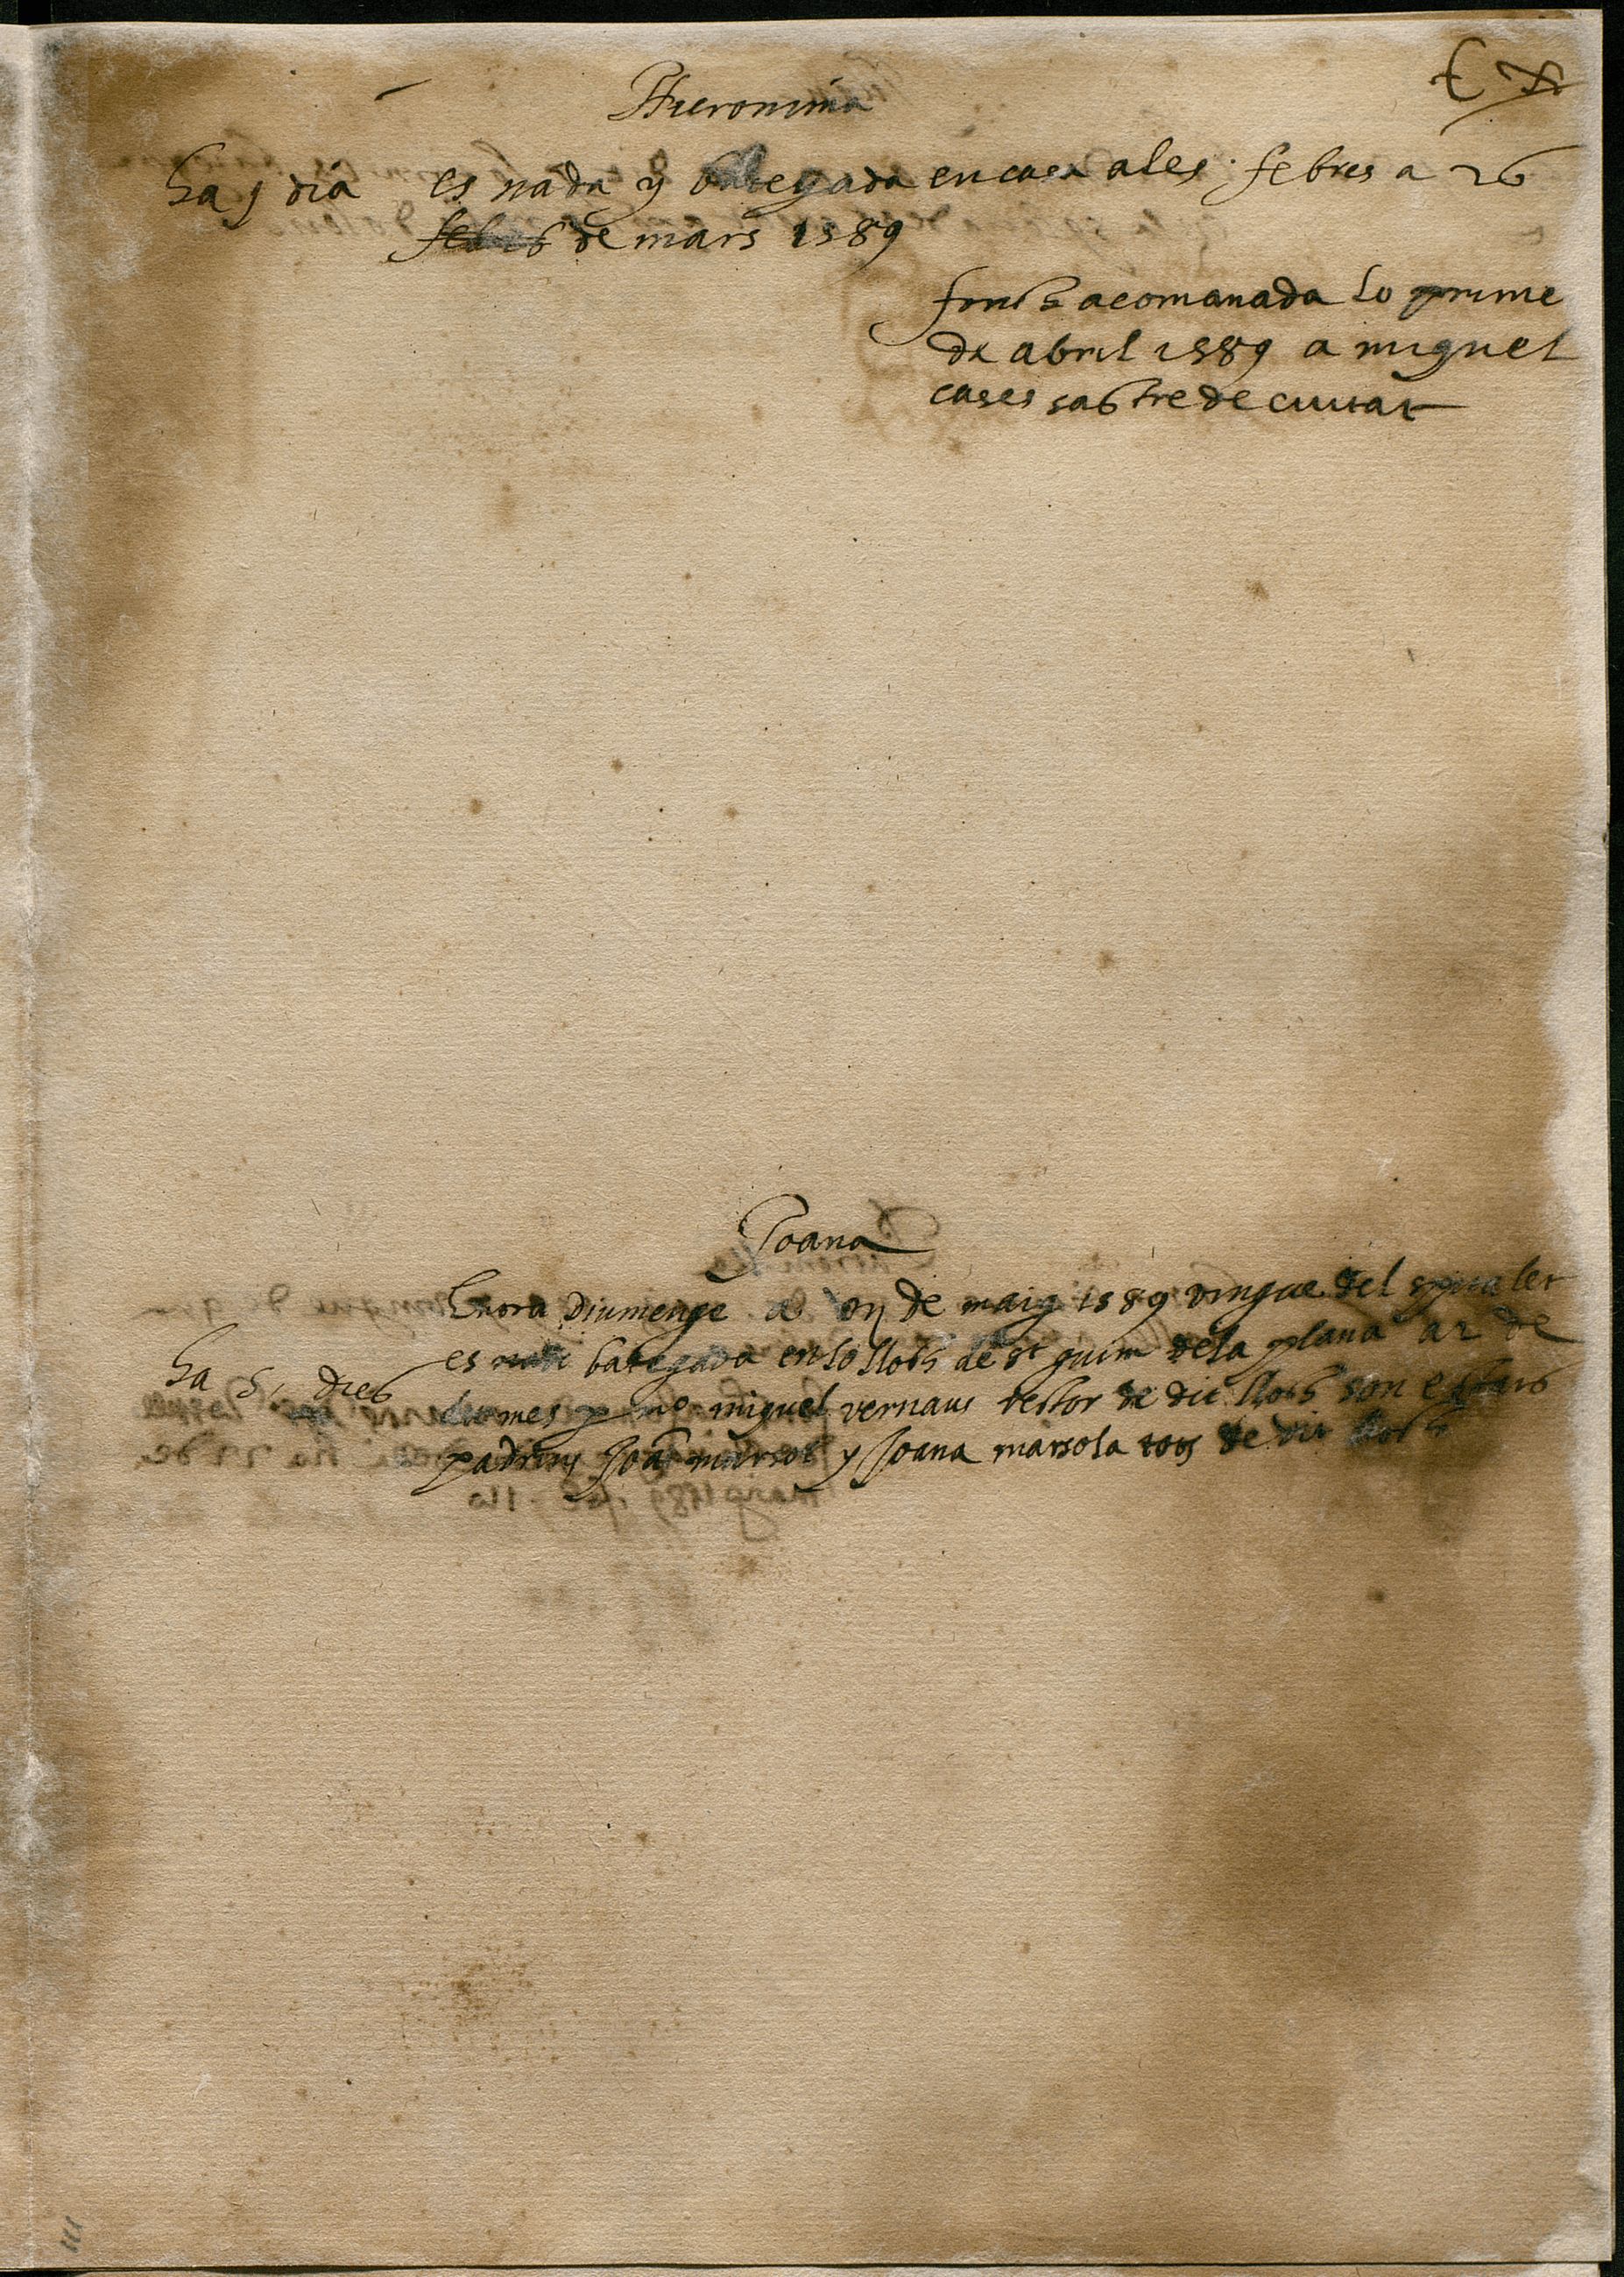 Hieronima
ha j dia es nada y bategada en casa a les febres a 26
feb 26 de mars 1589
fonch acomanada lo prime
de abril 1589 a miquel
cases sastre de ciutat
Joana
Encara diumenge a de maig 1589 vingue del spitalet
ha 5 dies es bategada en lo lloch de St guim de la plana a 2 de
du mes p mo miquel vernaus rector de dit lloch son estats
padrins Joã marsol y Joana marsola tots de dit lloch